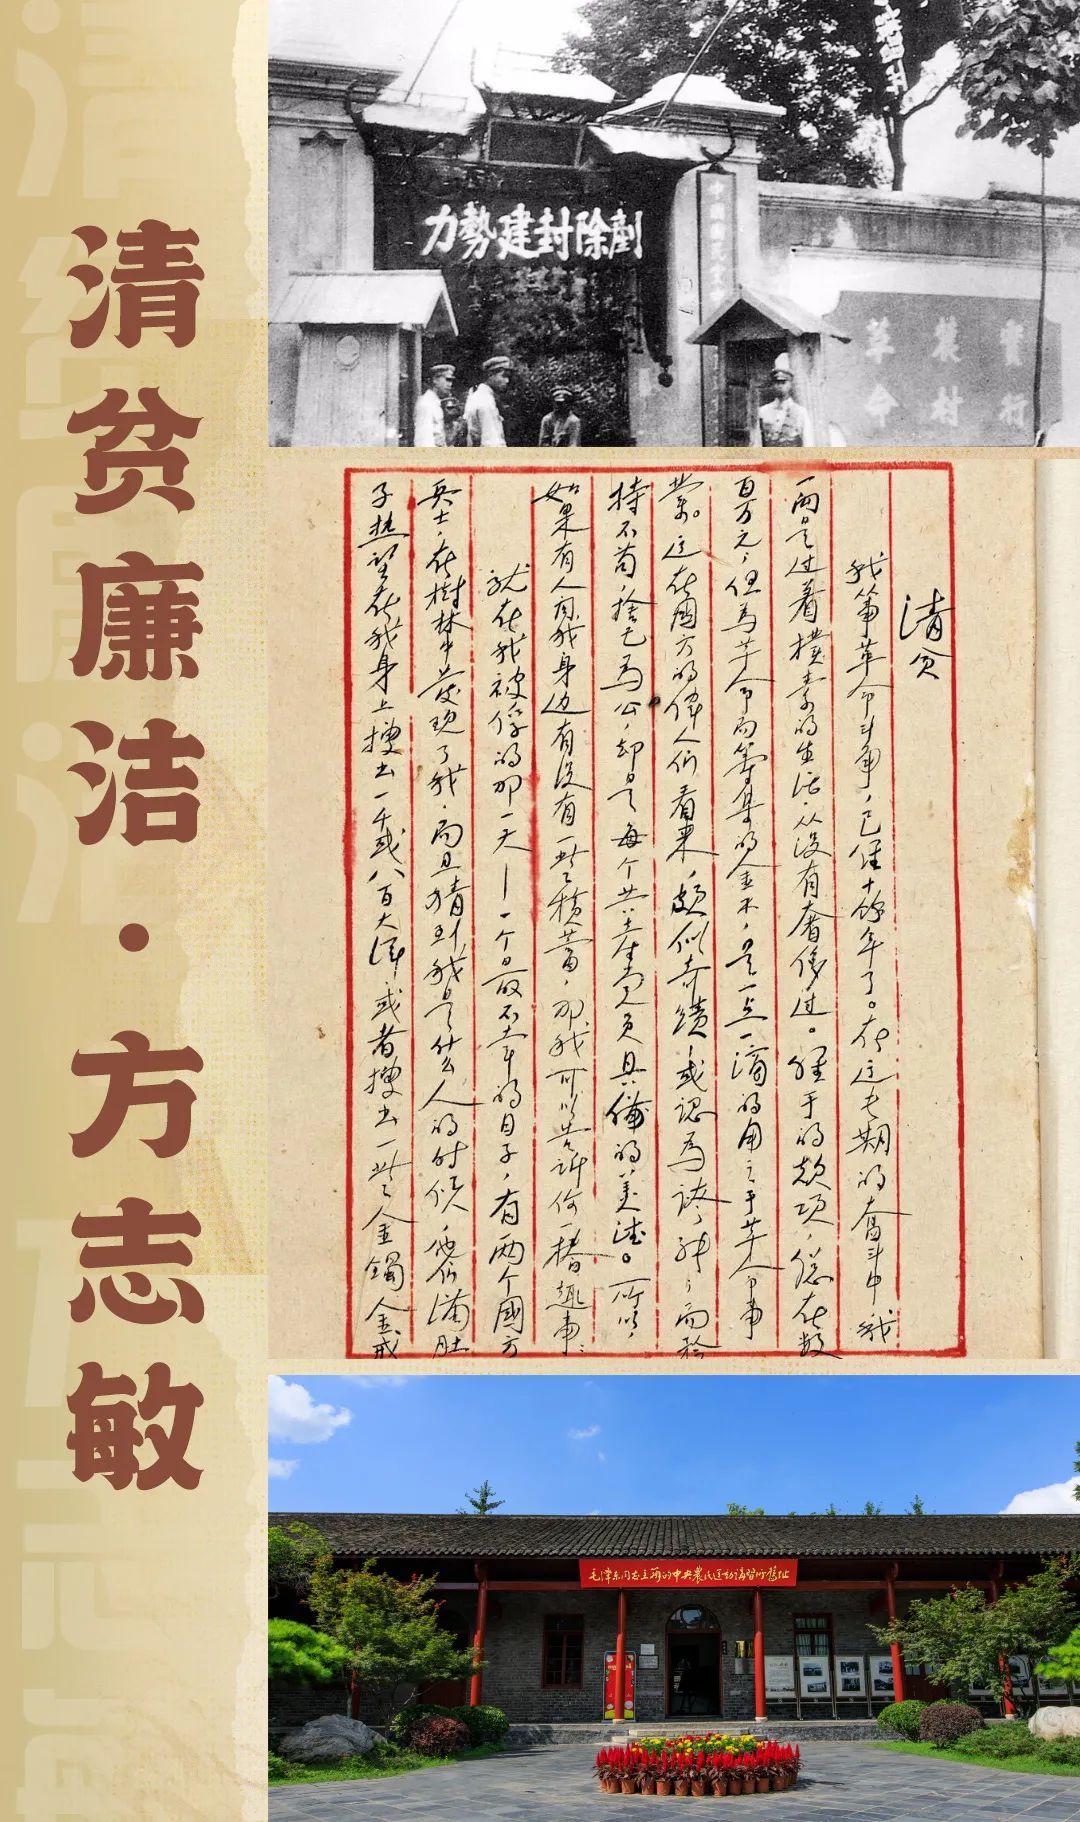 清贫廉洁·方志敏
力勢建封除剷
實行
農村
革命
清贫
我篳革命斗争，已经十餘年了。在这長期的奮斗中，我
一向是过着樸素的生活，从没有奢侈过。經手的款项，总在数
百万元；但为革命而筹集的金錢，是一点一滴的用之于革命事
業。这在國方的偉人们看来，頗似奇績，或認为誇張；而矜
持不苟，捨己为公，却是每个共產党员具備的美德。所以，
如果有人问我身边有没有一些積蓄，那我可以告訴你一樁趣事：
就在我被俘的那一天——一个最不幸的日子，有两个國方
兵士，在樹林中發现了我，而且猜到我是什么人的时候，他们满肚
子热望在我身上搜出一千或八百大洋，或者搜出一些金鐲金戒
毛澤东同志主辦的中央農民运动講習所舊址